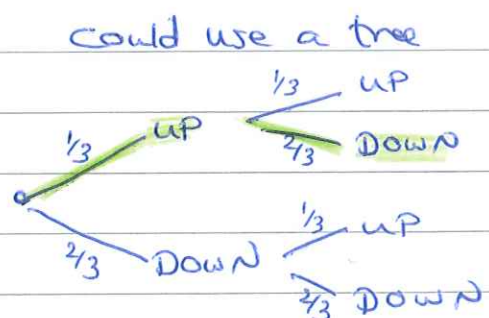 could use a tree
1/3 UP
1/3 UP
2/3 DOWN
1/3 UP
2/3 DOWN
2/3 DOWN